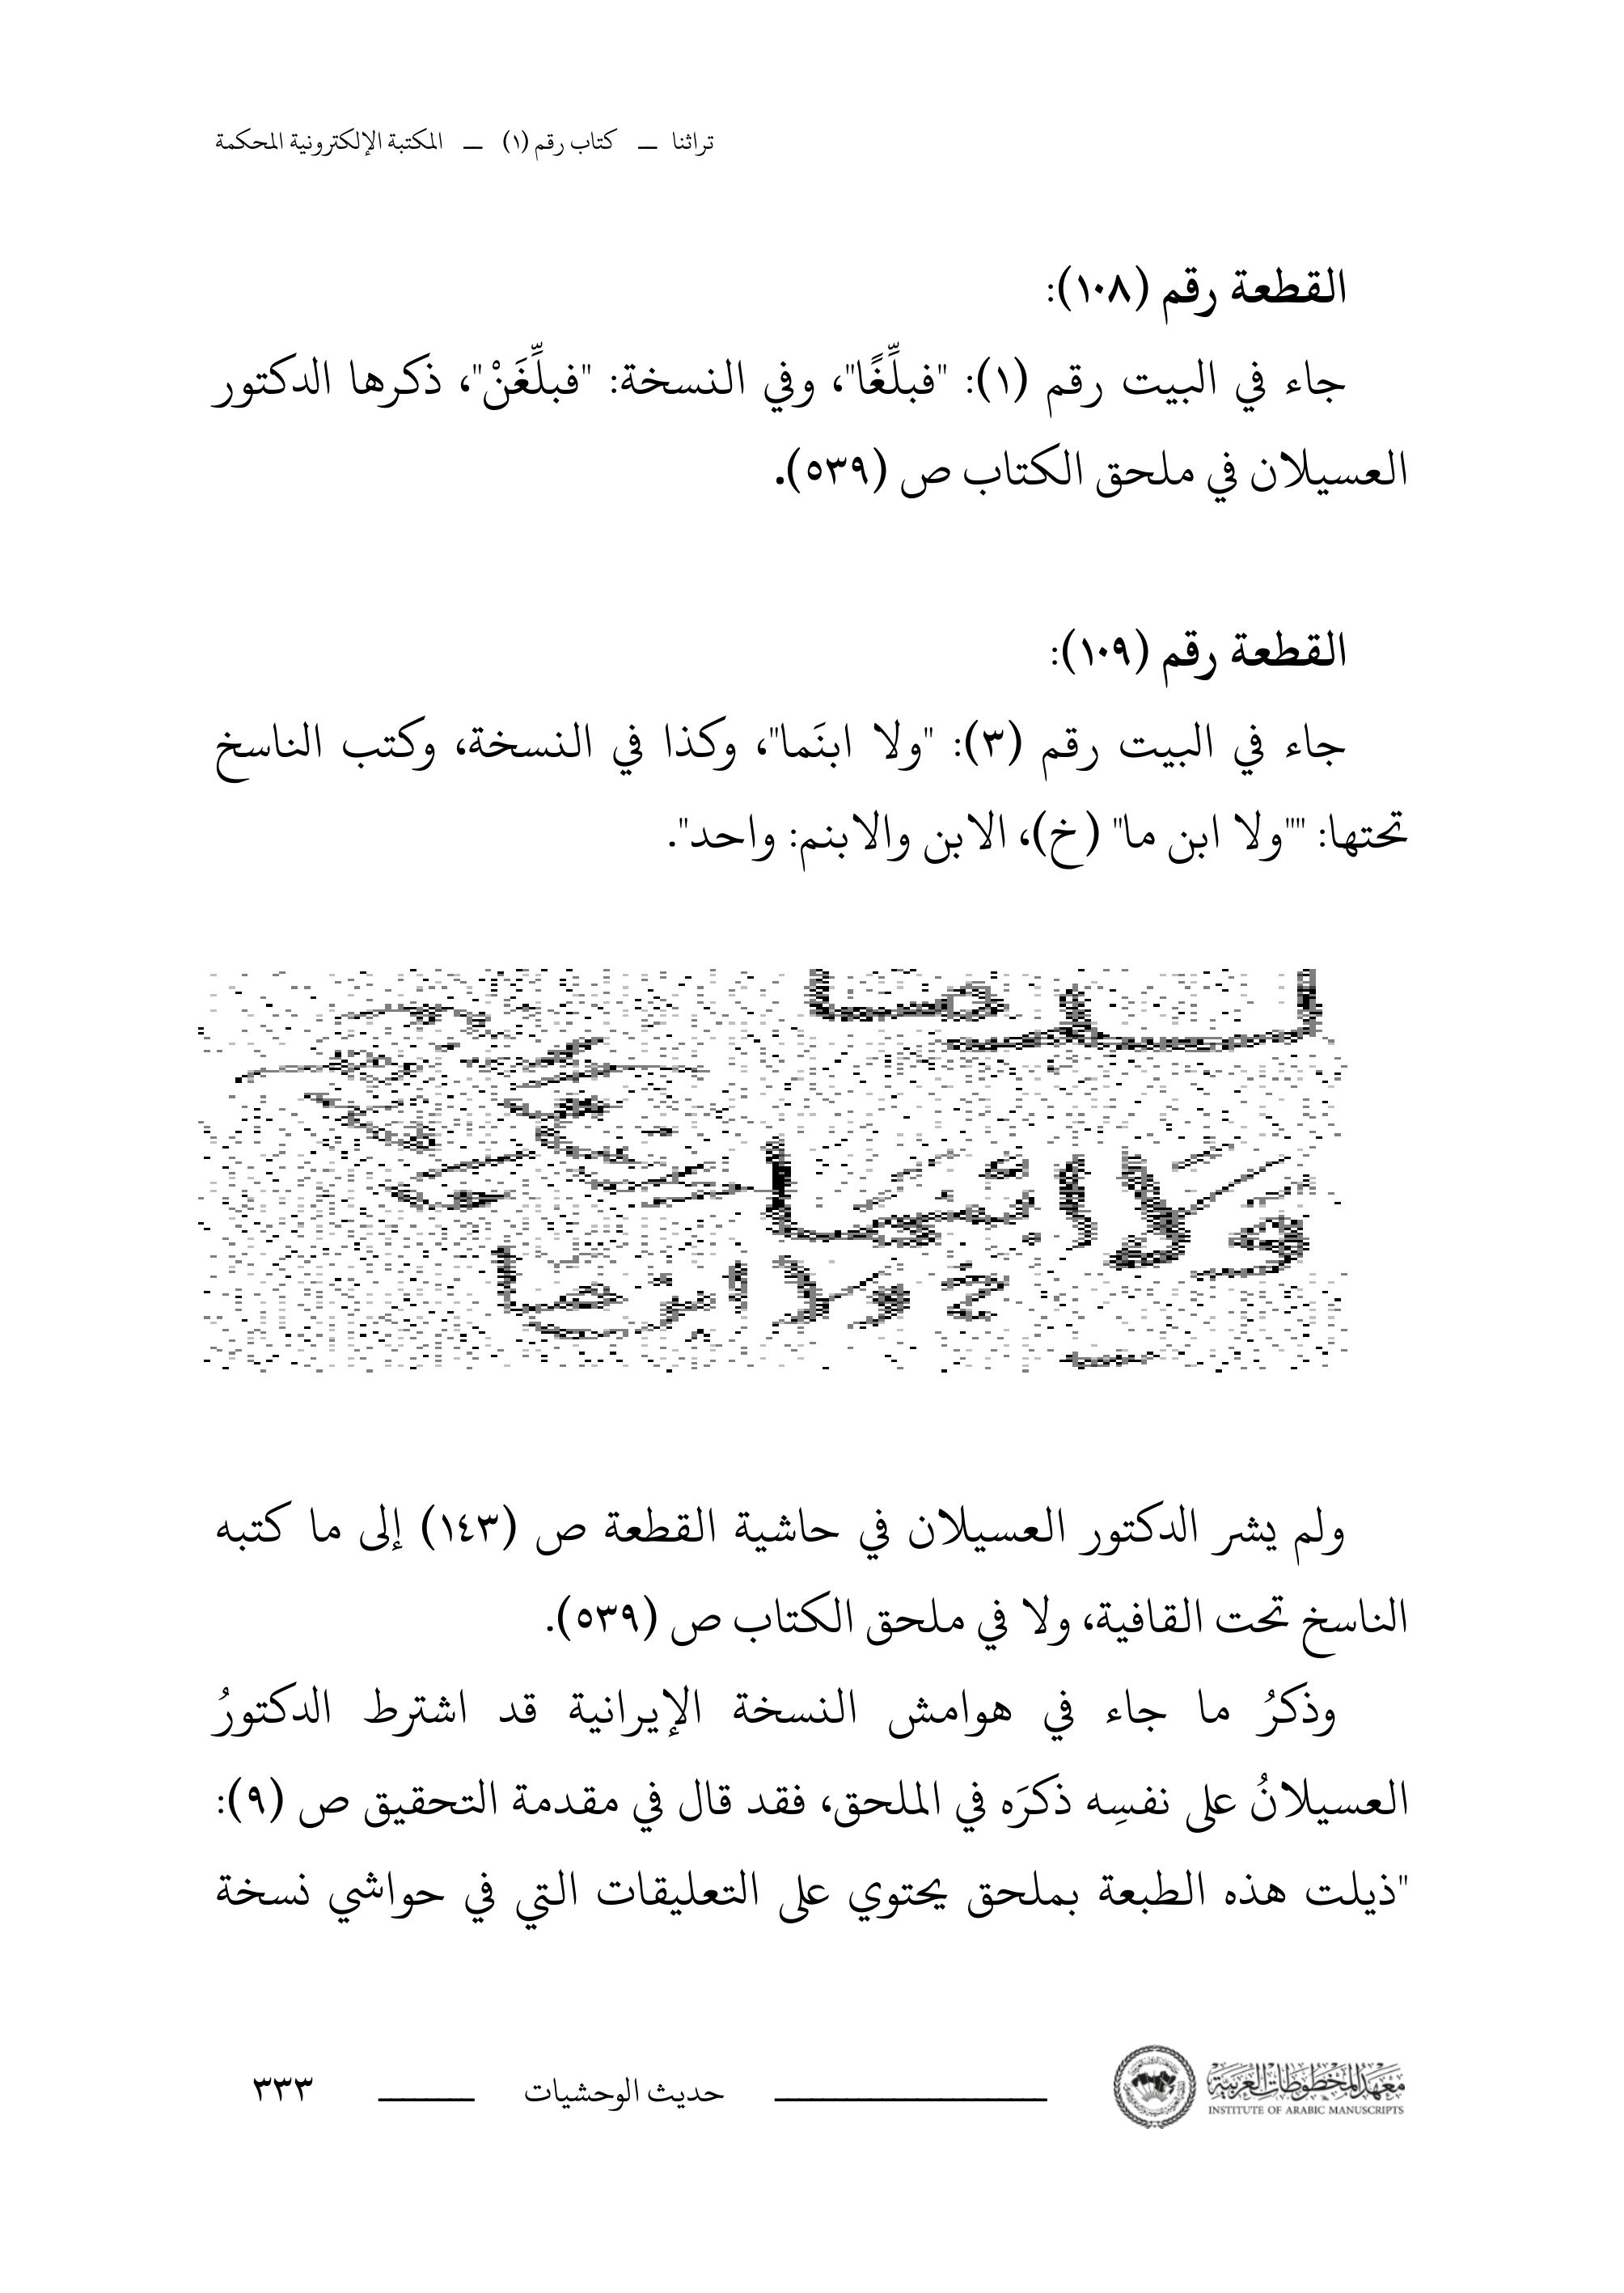 تراثنا — كتاب رقم (١) — المكتبة الإلكترونية المحكمة
القطعة رقم (١٠٨):
جاء في البيت رقم (١): "فبلِّغًا"، وفي النسخة: "فبلِّغَنْ"، ذكرها الدكتور
العسيلان في ملحق الكتاب ص (٥٣٩).
القطعة رقم (١٠٩):
جاء في البيت رقم (٣): "ولا ابنَما"، وكذا في النسخة، وكتب الناسخ
تحتها: ""ولا ابن ما" (خ)، الابن والابنم: واحد".
ولم يشر الدكتور العسيلان في حاشية القطعة ص (١٤٣) إلى ما كتبه
الناسخ تحت القافية، ولا في ملحق الكتاب ص (٥٣٩).
وذكرُ ما جاء في هوامش النسخة الإيرانية قد اشترط الدكتورُ
العسيلانُ على نفسِه ذكرَه في الملحق، فقد قال في مقدمة التحقيق ص (٩):
"ذيلت هذه الطبعة بملحق يحتوي على التعليقات التي في حواشي نسخة
معهد المخطوطات العربية
INSTITUTE OF ARABIC MANUSCRIPTS
حديث الوحشيات
٣٣٣